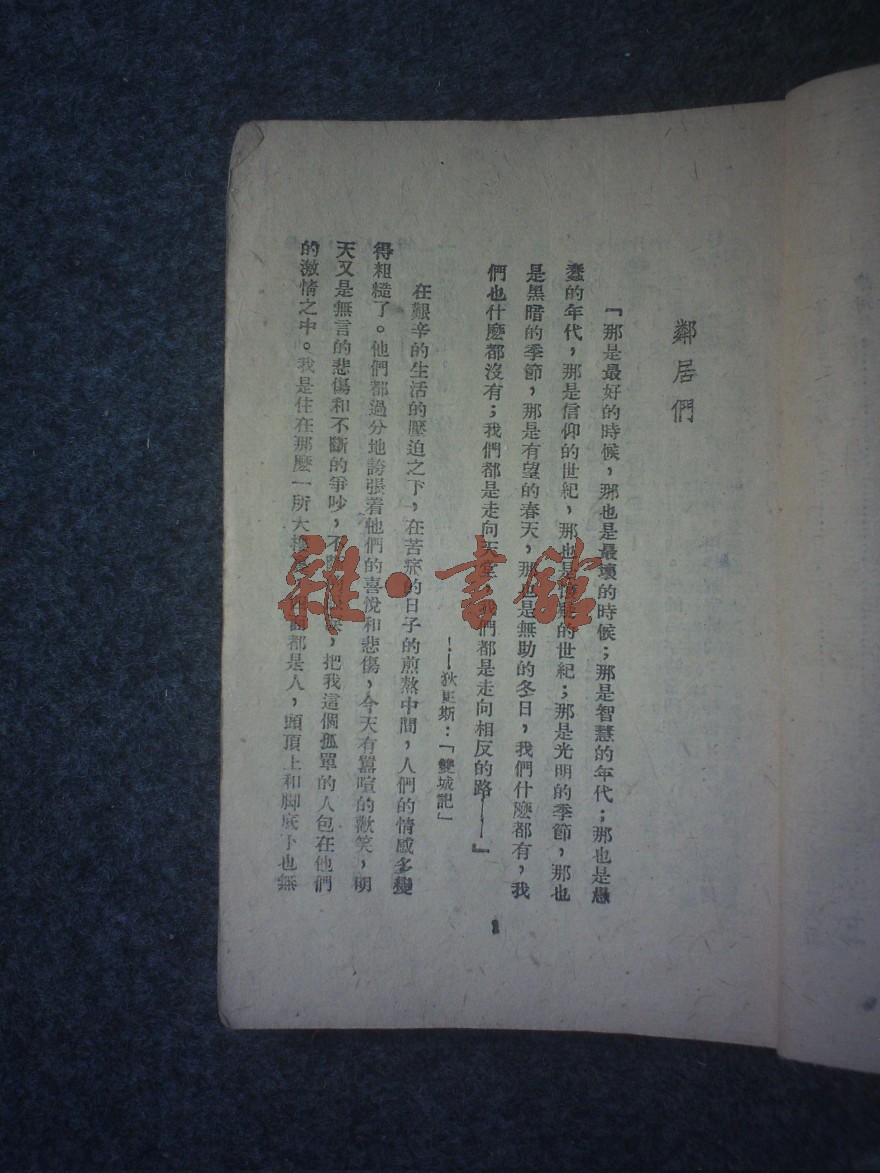 鄰居們
『那是最好的時候，那也是最壞的時候；那是智慧的年代；那也是愚
蠢的年代，那是信仰的世紀，那也是的世紀；那是光明的季節，那也
是黑暗的季節，那是有望的春天，那也是無助的冬日，我們什麼都有，我
們也什麼都沒有；我們都是走向天堂，我們都是走向相反的路——』
——狄更斯：「雙城記」
在艱辛的生活的壓迫之下，在苦痛的日子的煎熬中間，人們的情感多變
得粗糙了。他們都過分地誇張着他們的喜悅和悲傷，今天有囂喧的歡笑，明
天又是無言的悲傷和不斷的爭吵，不，把我這個孤單的人包在他們
的激情之中。我是住在那麼一所大都是人，頭頂上和脚底下也無
1
雜·書館